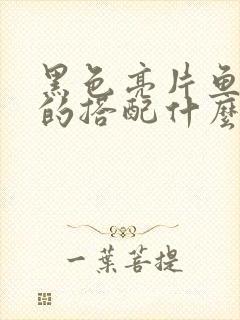 黑色亮片鱼
的搭配什麼
一葉菩提